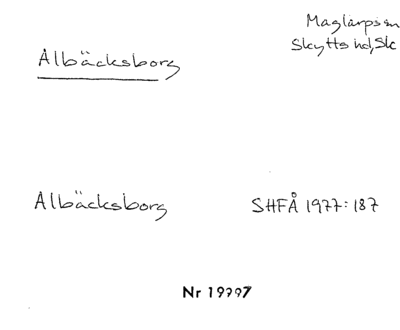 Maglarps sn
Skytts hd, Sk
Albäcksborg
Albäcksborg SHFÅ 1977:187
Nr 19997